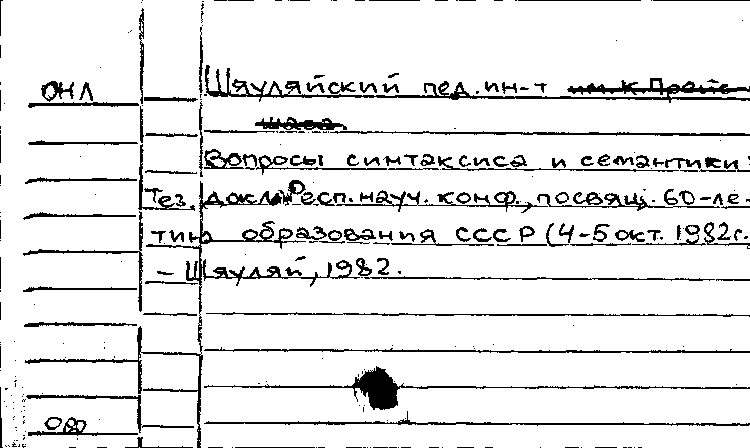 ОНЛ
Шяуляйский пед. ин-т им. К. Прейк-
шаса.
Вопросы синтаксиса и семантики:
Тез. докл. Респ. науч. конф., посвящ. 60-ле-
тию образования СССР (4-5 окт. 1982г.
– Шяуляй, 1982.